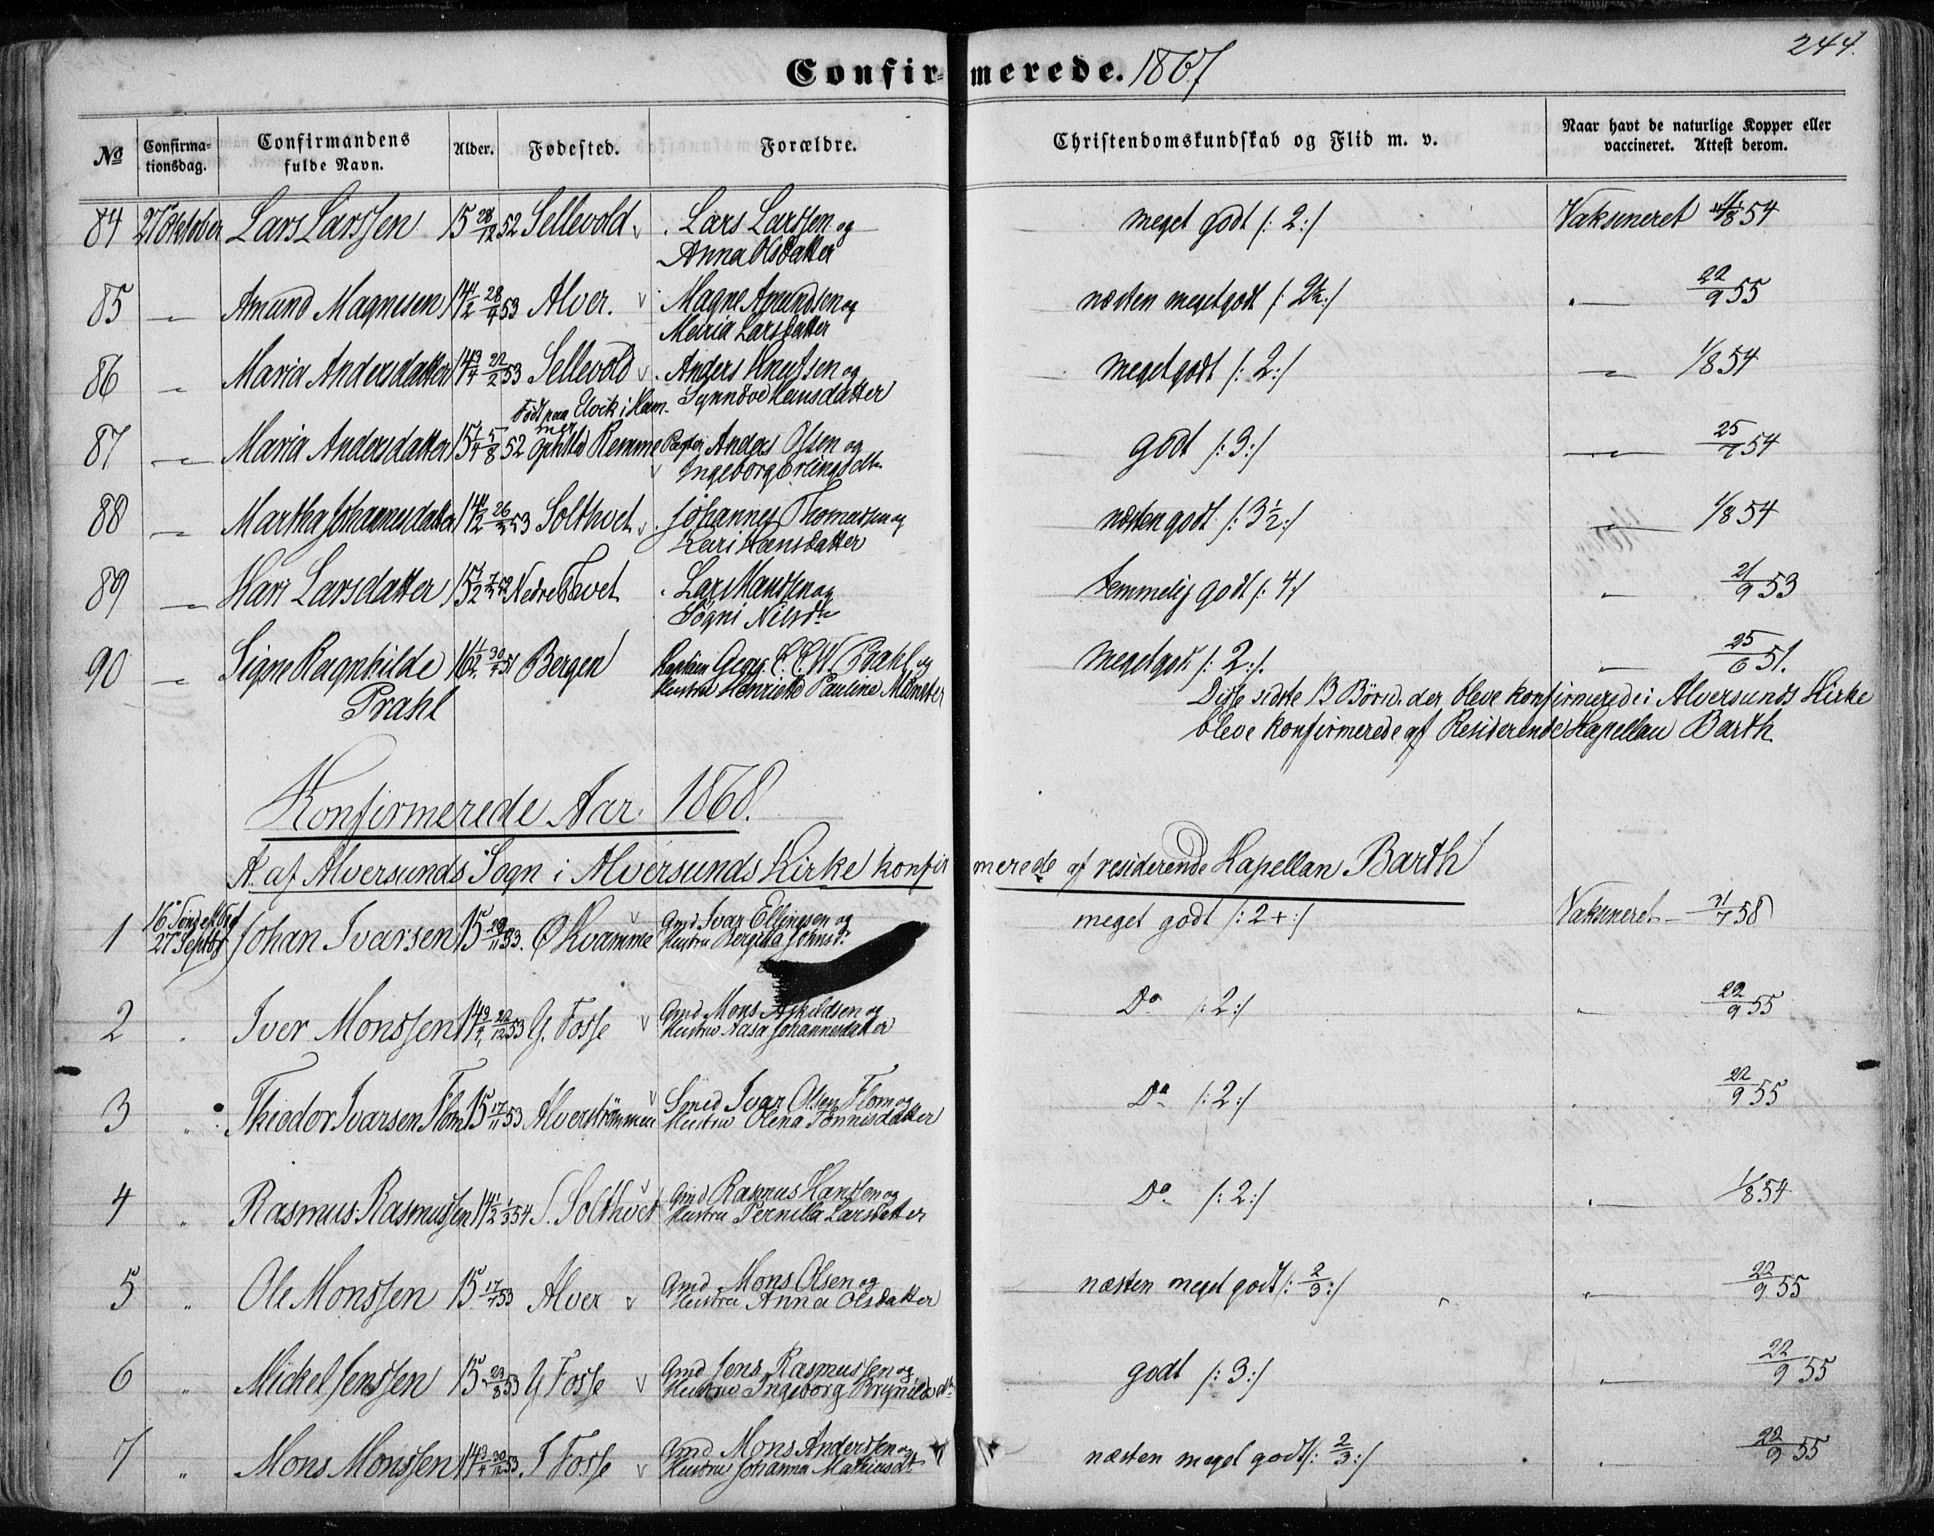 244.
Confirmerede. 1867
No Confirmationsdag. Confirmandens fulde Navn. Alder. Fødested. Forældre. Christendomskundskab og Flid m. v. Naar havt de naturlige Kopper eller vaccineret. Attest derom.
84 27 Oktober Lars Larssen 15 28/12 52 Sellevold Lars Larssen og meget godt /: 2 :/ Vaksineret 54
Anna Olsdatter
85 " Amund Magnesen 14 1/2 28/4 53 Alver. Magne Amundsen og næsten meget godt /: 2 1/2 :/ " 22/9 55
Maria Larsdatter
86 " Maria Andersdatter 14 3/4 22/2 53 Sellevold Anders Knutsen og meget godt /: 2 :/ " 1/8 54
Synnöve Hansdatter
Født paa Elvik i Hammer
87 " Maria Andersdatter 15 1/4 5/8 52 Opholdd Remme Anders Olsen og godt /: 3 :/ " 25/ 54
Ingeborg Erlingsdtr
88 " Martha Johannesdatter 14 1/2 26/ 53 Solthvet Johannes Thomassen og næsten godt /: 3 1/2 :/ " 1/8 54
Kari Hansdatter
89 " Kari Larsdatter 15 1/2 52 Nedre Tvet Lars Hanssen og temmelig godt /: 4 :/ " 21/9 53
Sögni Nilsdtr
90 " Signe Ragnhilde 16 1/2 30/4 51 Bergen Kaptein Georg C. C. W. Prahl og meget godt /: 2 :/. " 25/6 51.
Prahl Hustru Henriette Pauline Münster
Disse sidste 13 Børn, der bleve konfirmerede i Alversunds Kirke
bleve konfirmerede af Residerende Kapellan Barth.
Konfirmerede Aar 1868.
A. af Alversunds Sogn i Alversunds Kirke konfirmerede af residerende Kapellan Barth
16 Sönd eft Tref
1 27 Septbr Johan Ivarsen 15 29/11 53. Ø Kvamme Gmd Ivar Ellingsen og meget godt /: 2 + :/ Vaksineret 21/7 58
Hustru Bergitta Johnsd.
2 " Iver Monssen 14 3/4 22/12 53 G. Fosse Gmd Mons Askildsen og Do /: 2 :/ " 22/9 55
Hustru Aasa Johannesdatter
3 " Theodor Ivarsen Flom 15 17/11 53 Alverströmmen Smed Ivar Olsen Flom og Do /: 2 :/ " 22/9 55
Hustru Olena Tönnisdatter
4 " Rasmus Rasmussen 14 1/2 1/3 54 S. Solthvet Gmd Rasmus Hanssen og Do /: 2 :/ " 1/8 54
Hustru Pernilla Larsdatter
5 " Ole Monssen 15 17/7 53 Alver Gmd Mons Olsen og næsten meget godt /: 2/3 :/ " 22/9 55
Hustru Anna Olsdatter
6 " Mickel Jenssen 15 29/8 53 G Fosse Gmd Jens Rasmussen og godt /: 3 :/ " 22/9 55
Hustru Ingeborg Brynildsdtr
7 " Mons Monssen 14 3/4 30/12 53 I Fosse Gmd Mons Anderssen og næsten meget godt /: 2/3 :/ " 22/9 55
Hustru Johanna Mathiasdtr